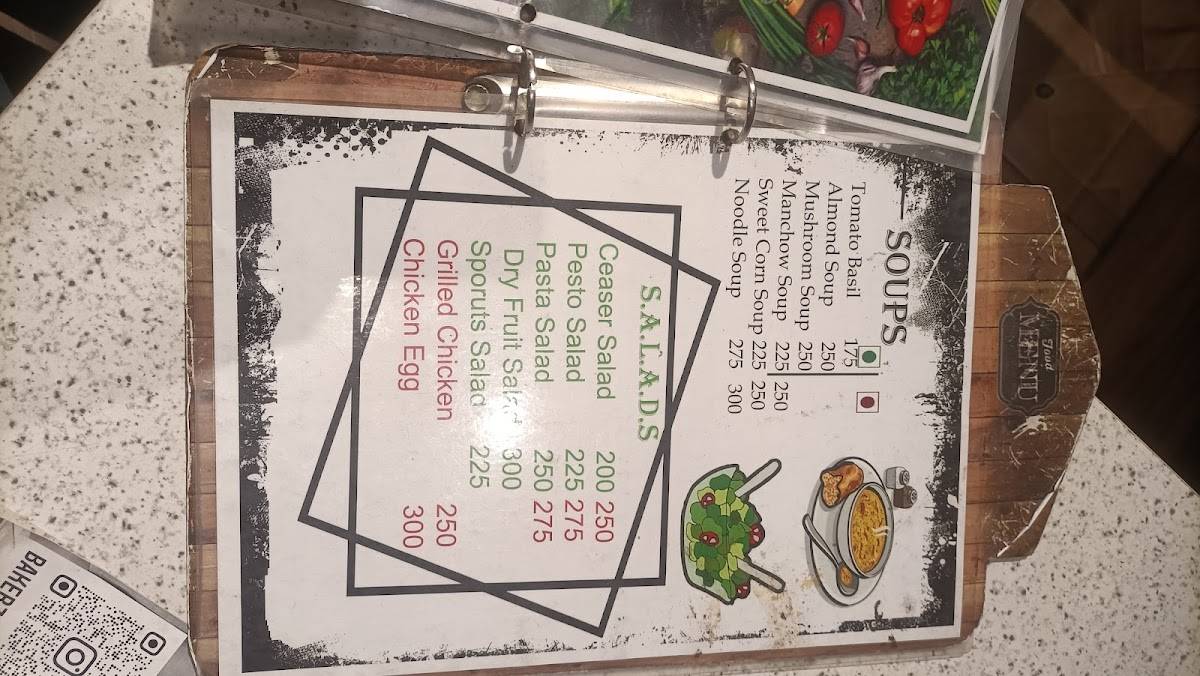 Food
MENU
SOUPS
Tomato Basil 175
Almond Soup 250
Mushroom Soup 250
Manchow Soup 225 250
Sweet Corn Soup 225 250
Noodle Soup 275 300
S.A.L.A.D.S
Ceaser Salad 200 250
Pesto Salad 225 275
Pasta Salad 250 275
Dry Fruit Salad 300
Sporuts Salad 225
Grilled Chicken 250
Chicken Egg 300